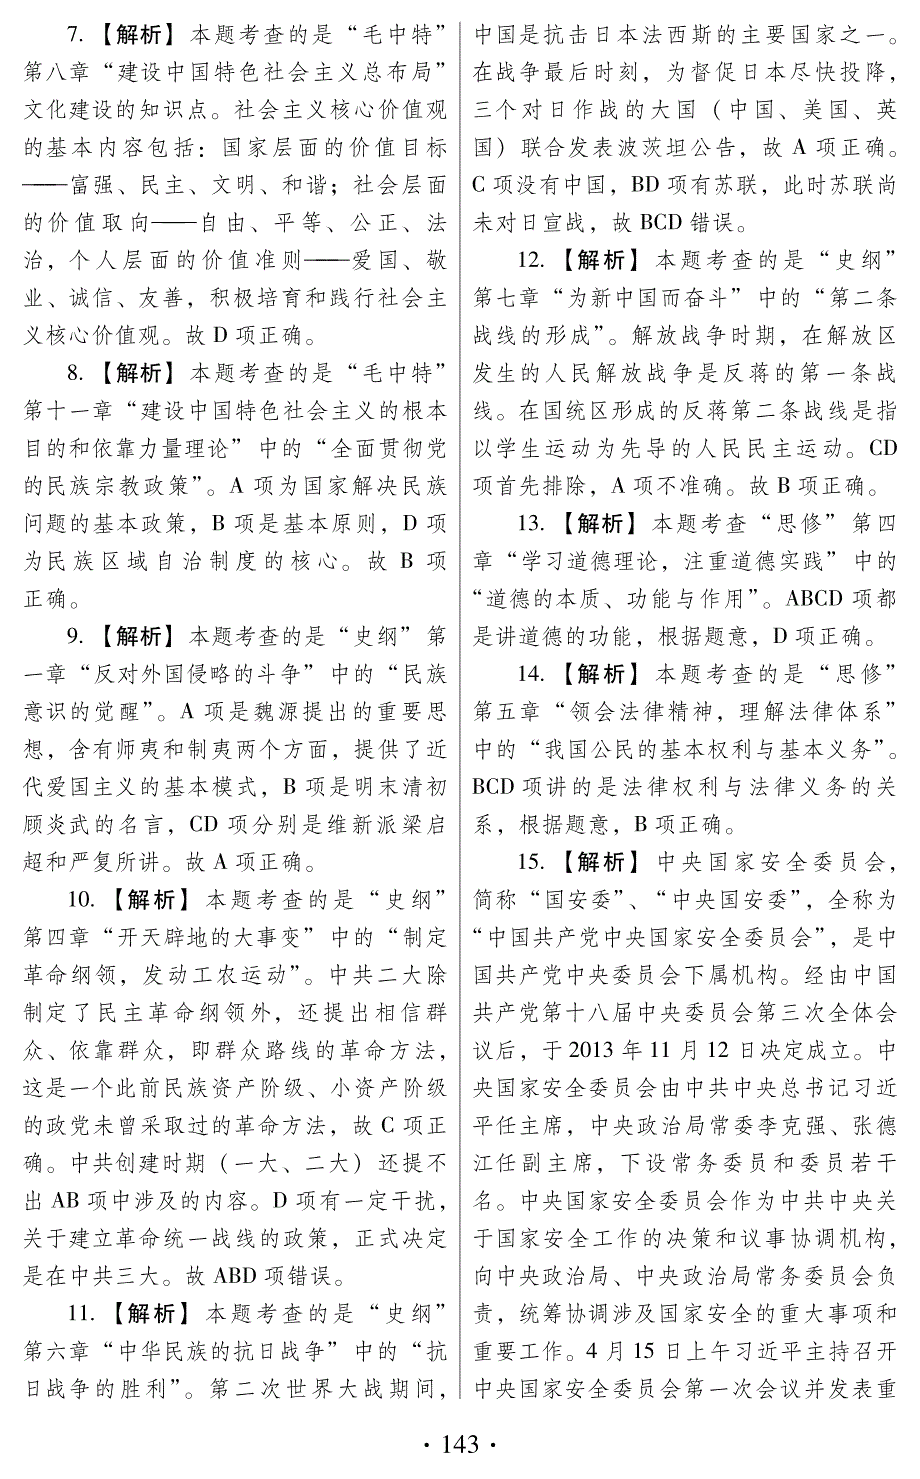 7. 【解析】本题考查的是“毛中特”
第八章“建设中国特色社会主义总布局”
文化建设的知识点。社会主义核心价值观
的基本内容包括：国家层面的价值目标
——富强、民主、文明、和谐；社会层面
的价值取向——自由、平等、公正、法
治，个人层面的价值准则——爱国、敬
业、诚信、友善，积极培育和践行社会主
义核心价值观。故 D 项正确。
8. 【解析】本题考查的是“毛中特”
第十一章“建设中国特色社会主义的根本
目的和依靠力量理论” 中的“全面贯彻党
的民族宗教政策”。A 项为国家解决民族
问题的基本政策，B 项是基本原则，D 项
为民族区域自治制度的核心。故 B 项
正确。
9. 【解析】本题考查的是“史纲” 第
一章“反对外国侵略的斗争” 中的“民族
意识的觉醒”。A 项是魏源提出的重要思
想，含有师夷和制夷两个方面，提供了近
代爱国主义的基本模式，B 项是明末清初
顾炎武的名言，CD 项分别是维新派梁启
超和严复所讲。故 A 项正确。
10. 【解析】本题考查的是“史纲”
第四章“开天辟地的大事变” 中的“制定
革命纲领，发动工农运动”。中共二大除
制定了民主革命纲领外，还提出相信群
众、依靠群众，即群众路线的革命方法，
这是一个此前民族资产阶级、小资产阶级
的政党未曾采取过的革命方法，故 C 项正
确。中共创建时期（一大、二大）还提不
出 AB 项中涉及的内容。D 项有一定干扰，
关于建立革命统一战线的政策，正式决定
是在中共三大。故 ABD 项错误。
11. 【解析】本题考查的是“史纲”
第六章“中华民族的抗日战争” 中的“抗
日战争的胜利”。第二次世界大战期间，
中国是抗击日本法西斯的主要国家之一。
在战争最后时刻，为督促日本尽快投降，
三个对日作战的大国（中国、美国、英
国）联合发表波茨坦公告，故 A 项正确。
C 项没有中国，BD 项有苏联，此时苏联尚
未对日宣战，故 BCD 错误。
12. 【解析】本题考查的是“史纲”
第七章“为新中国而奋斗” 中的“第二条
战线的形成”。解放战争时期，在解放区
发生的人民解放战争是反蒋的第一条战
线。在国统区形成的反蒋第二条战线是指
以学生运动为先导的人民民主运动。CD
项首先排除，A 项不准确。故 B 项正确。
13. 【解析】本题考查“思修” 第四
章“学习道德理论，注重道德实践” 中的
“道德的本质、功能与作用”。ABCD 项都
是讲道德的功能，根据题意，D 项正确。
14. 【解析】本题考查的是“思修”
第五章“领会法律精神，理解法律体系”
中的“我国公民的基本权利与基本义务”。
BCD 项讲的是法律权利与法律义务的关
系，根据题意，B 项正确。
15. 【解析】中央国家安全委员会，
简称“国安委”、“中央国安委”，全称为
“中国共产党中央国家安全委员会”，是中
国共产党中央委员会下属机构。经由中国
共产党第十八届中央委员会第三次全体会
议后，于 2013 年 11 月 12 日决定成立。中
央国家安全委员会由中共中央总书记习近
平任主席，中央政治局常委李克强、张德
江任副主席，下设常务委员和委员若干
名。中央国家安全委员会作为中共中央关
于国家安全工作的决策和议事协调机构，
向中央政治局、中央政治局常务委员会负
责，统筹协调涉及国家安全的重大事项和
重要工作。4 月 15 日上午习近平主持召开
中央国家安全委员会第一次会议并发表重
· 143 ·